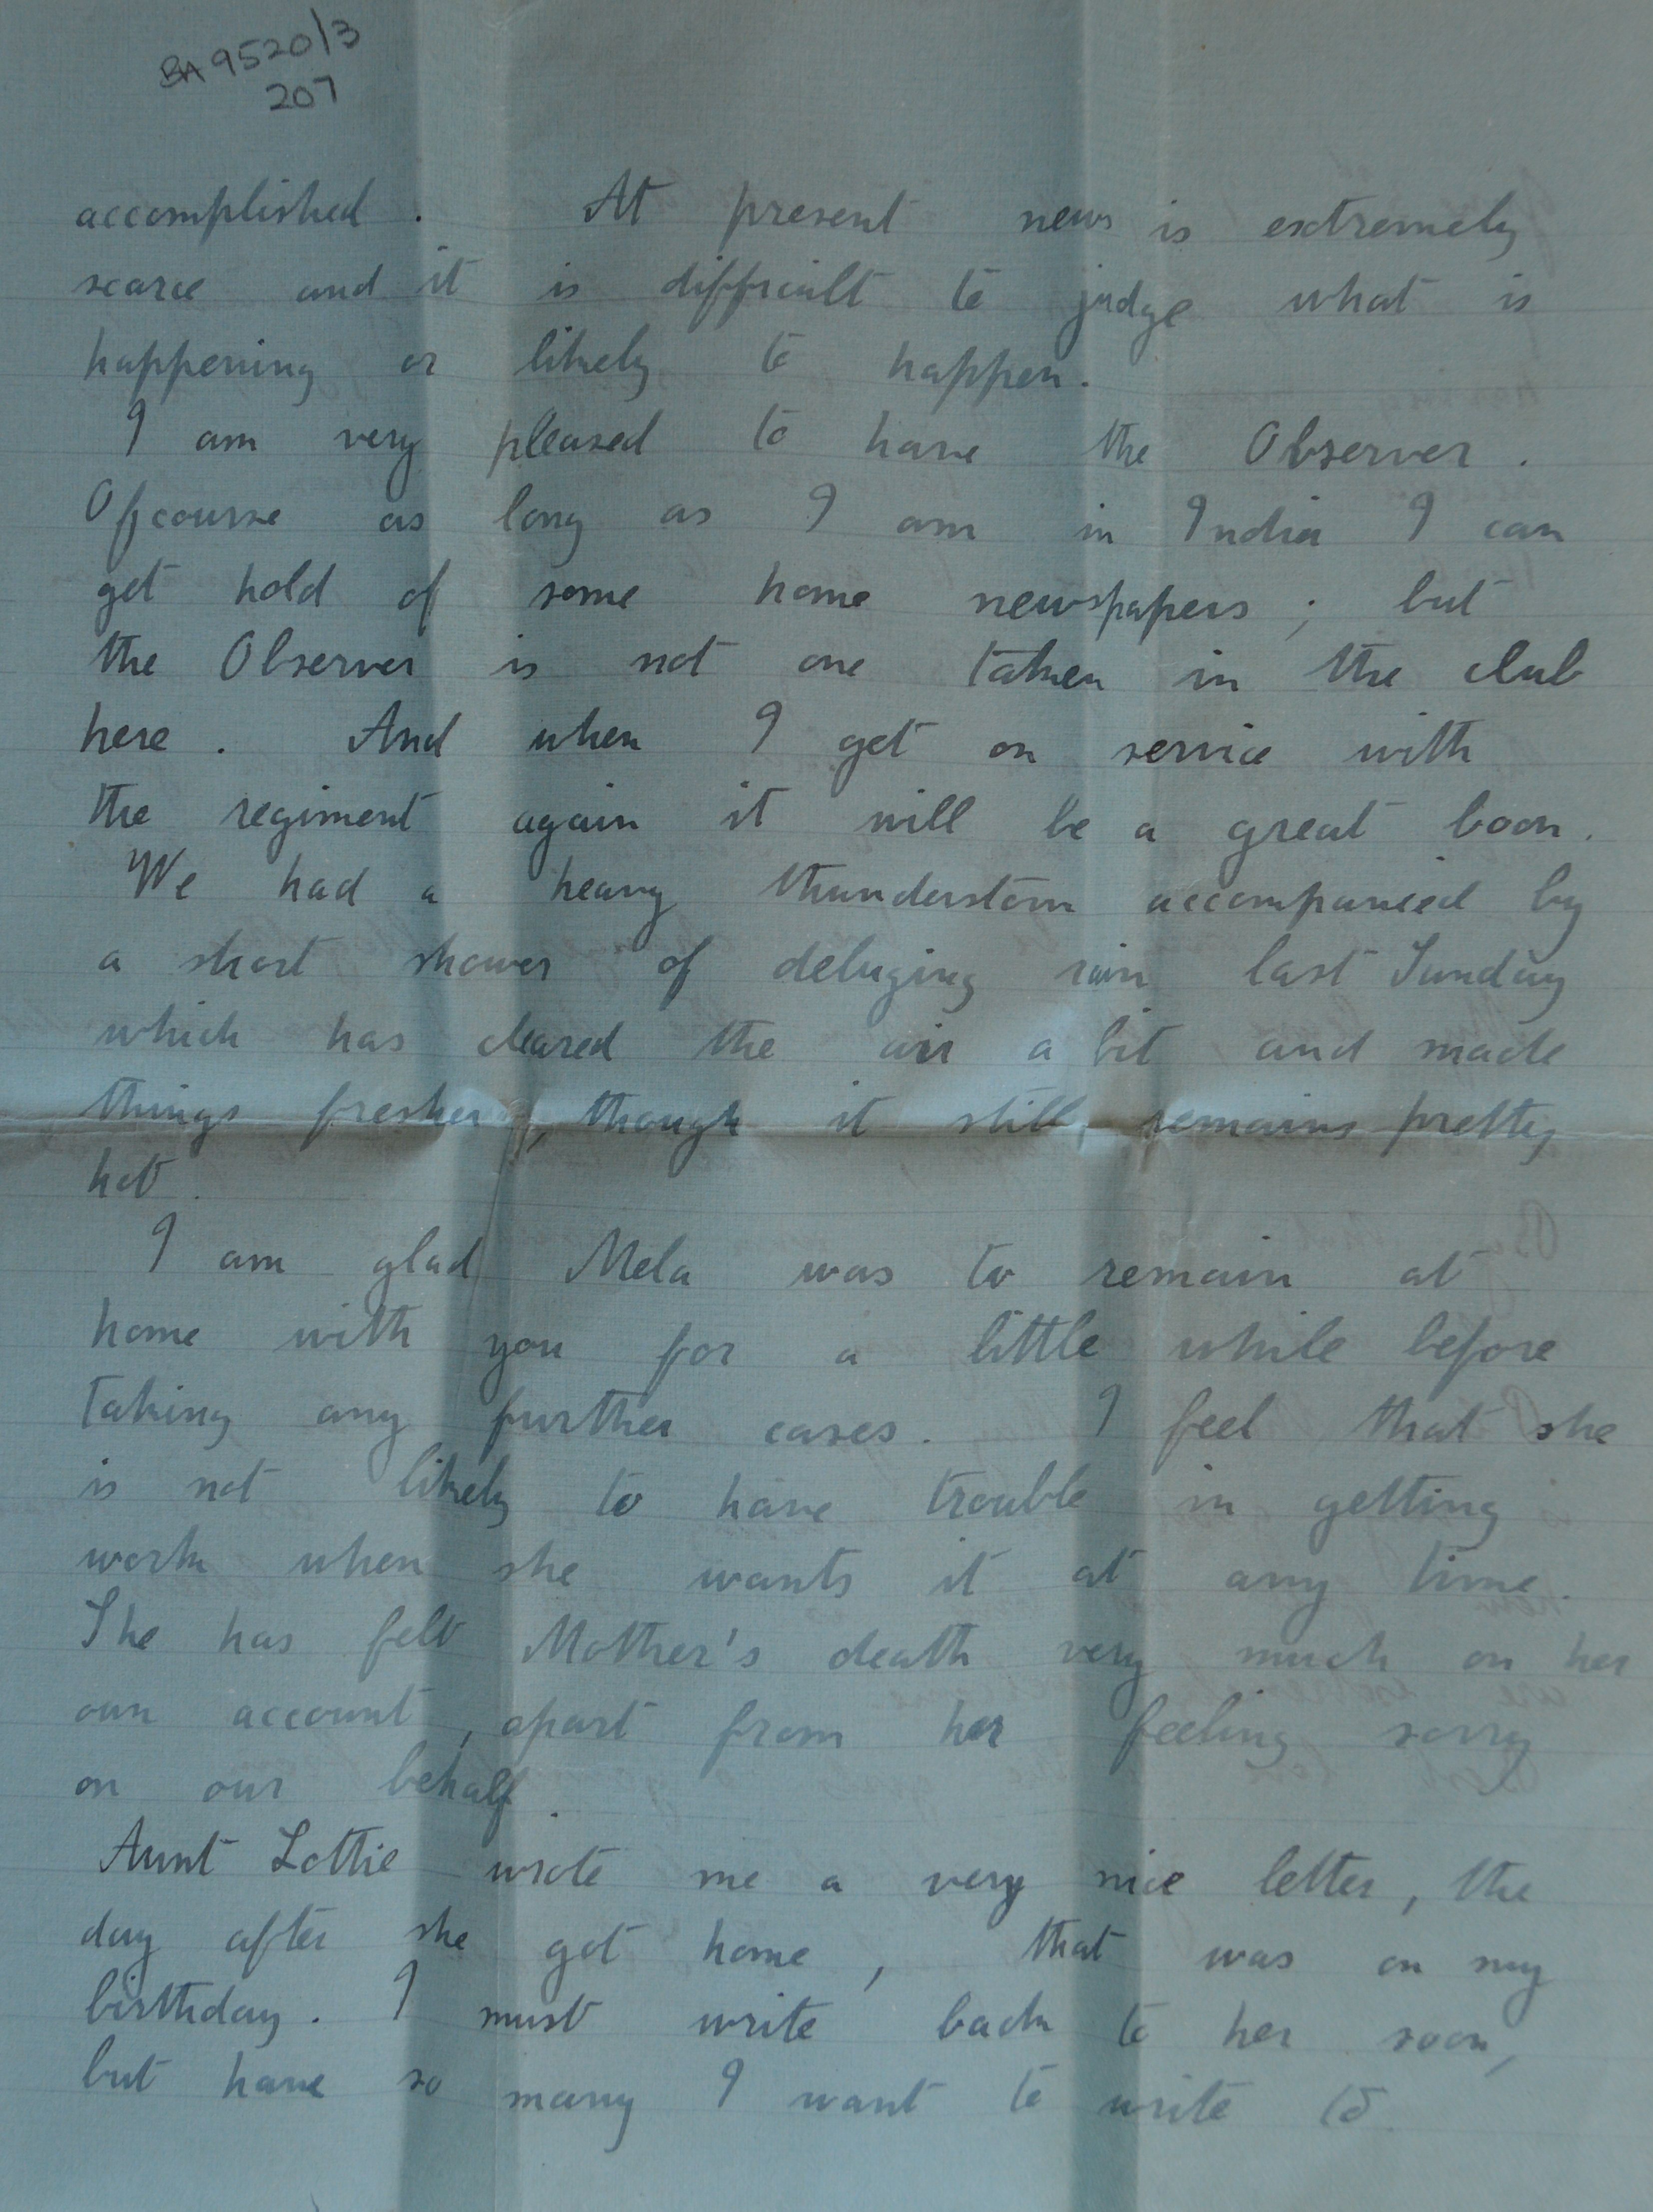 BA 9520/3
207
accomplished. At present news is extremely
scarce and it is difficult to judge what is
happening or likely to happen.
I am very pleased to have the Observer.
Ofcourse as long as I am in India I can
get hold of some home newspapers; but
the Observer is not one taken in the club
here. And when I get on service with
the regiment again it will be a great boon.
We had a heavy thunderstorm accompanied by
a short shower of deluging rain last Sunday
which has cleared the air a bit and made
things fresher, though it still remains pretty
hot.
I am glad Mela was to remain at
home with you for a little while before
taking any further cases. I feel that she
is not likely to have trouble in getting
work when she wants it at any time.
She has felt Mother's death very much on her
own account, apart from her feeling sorry
on our behalf.
Aunt Lottie wrote me a very nice letter, the
day after she got home, that was on my
birthday. I must write back to her soon,
but have so many I want to write to.